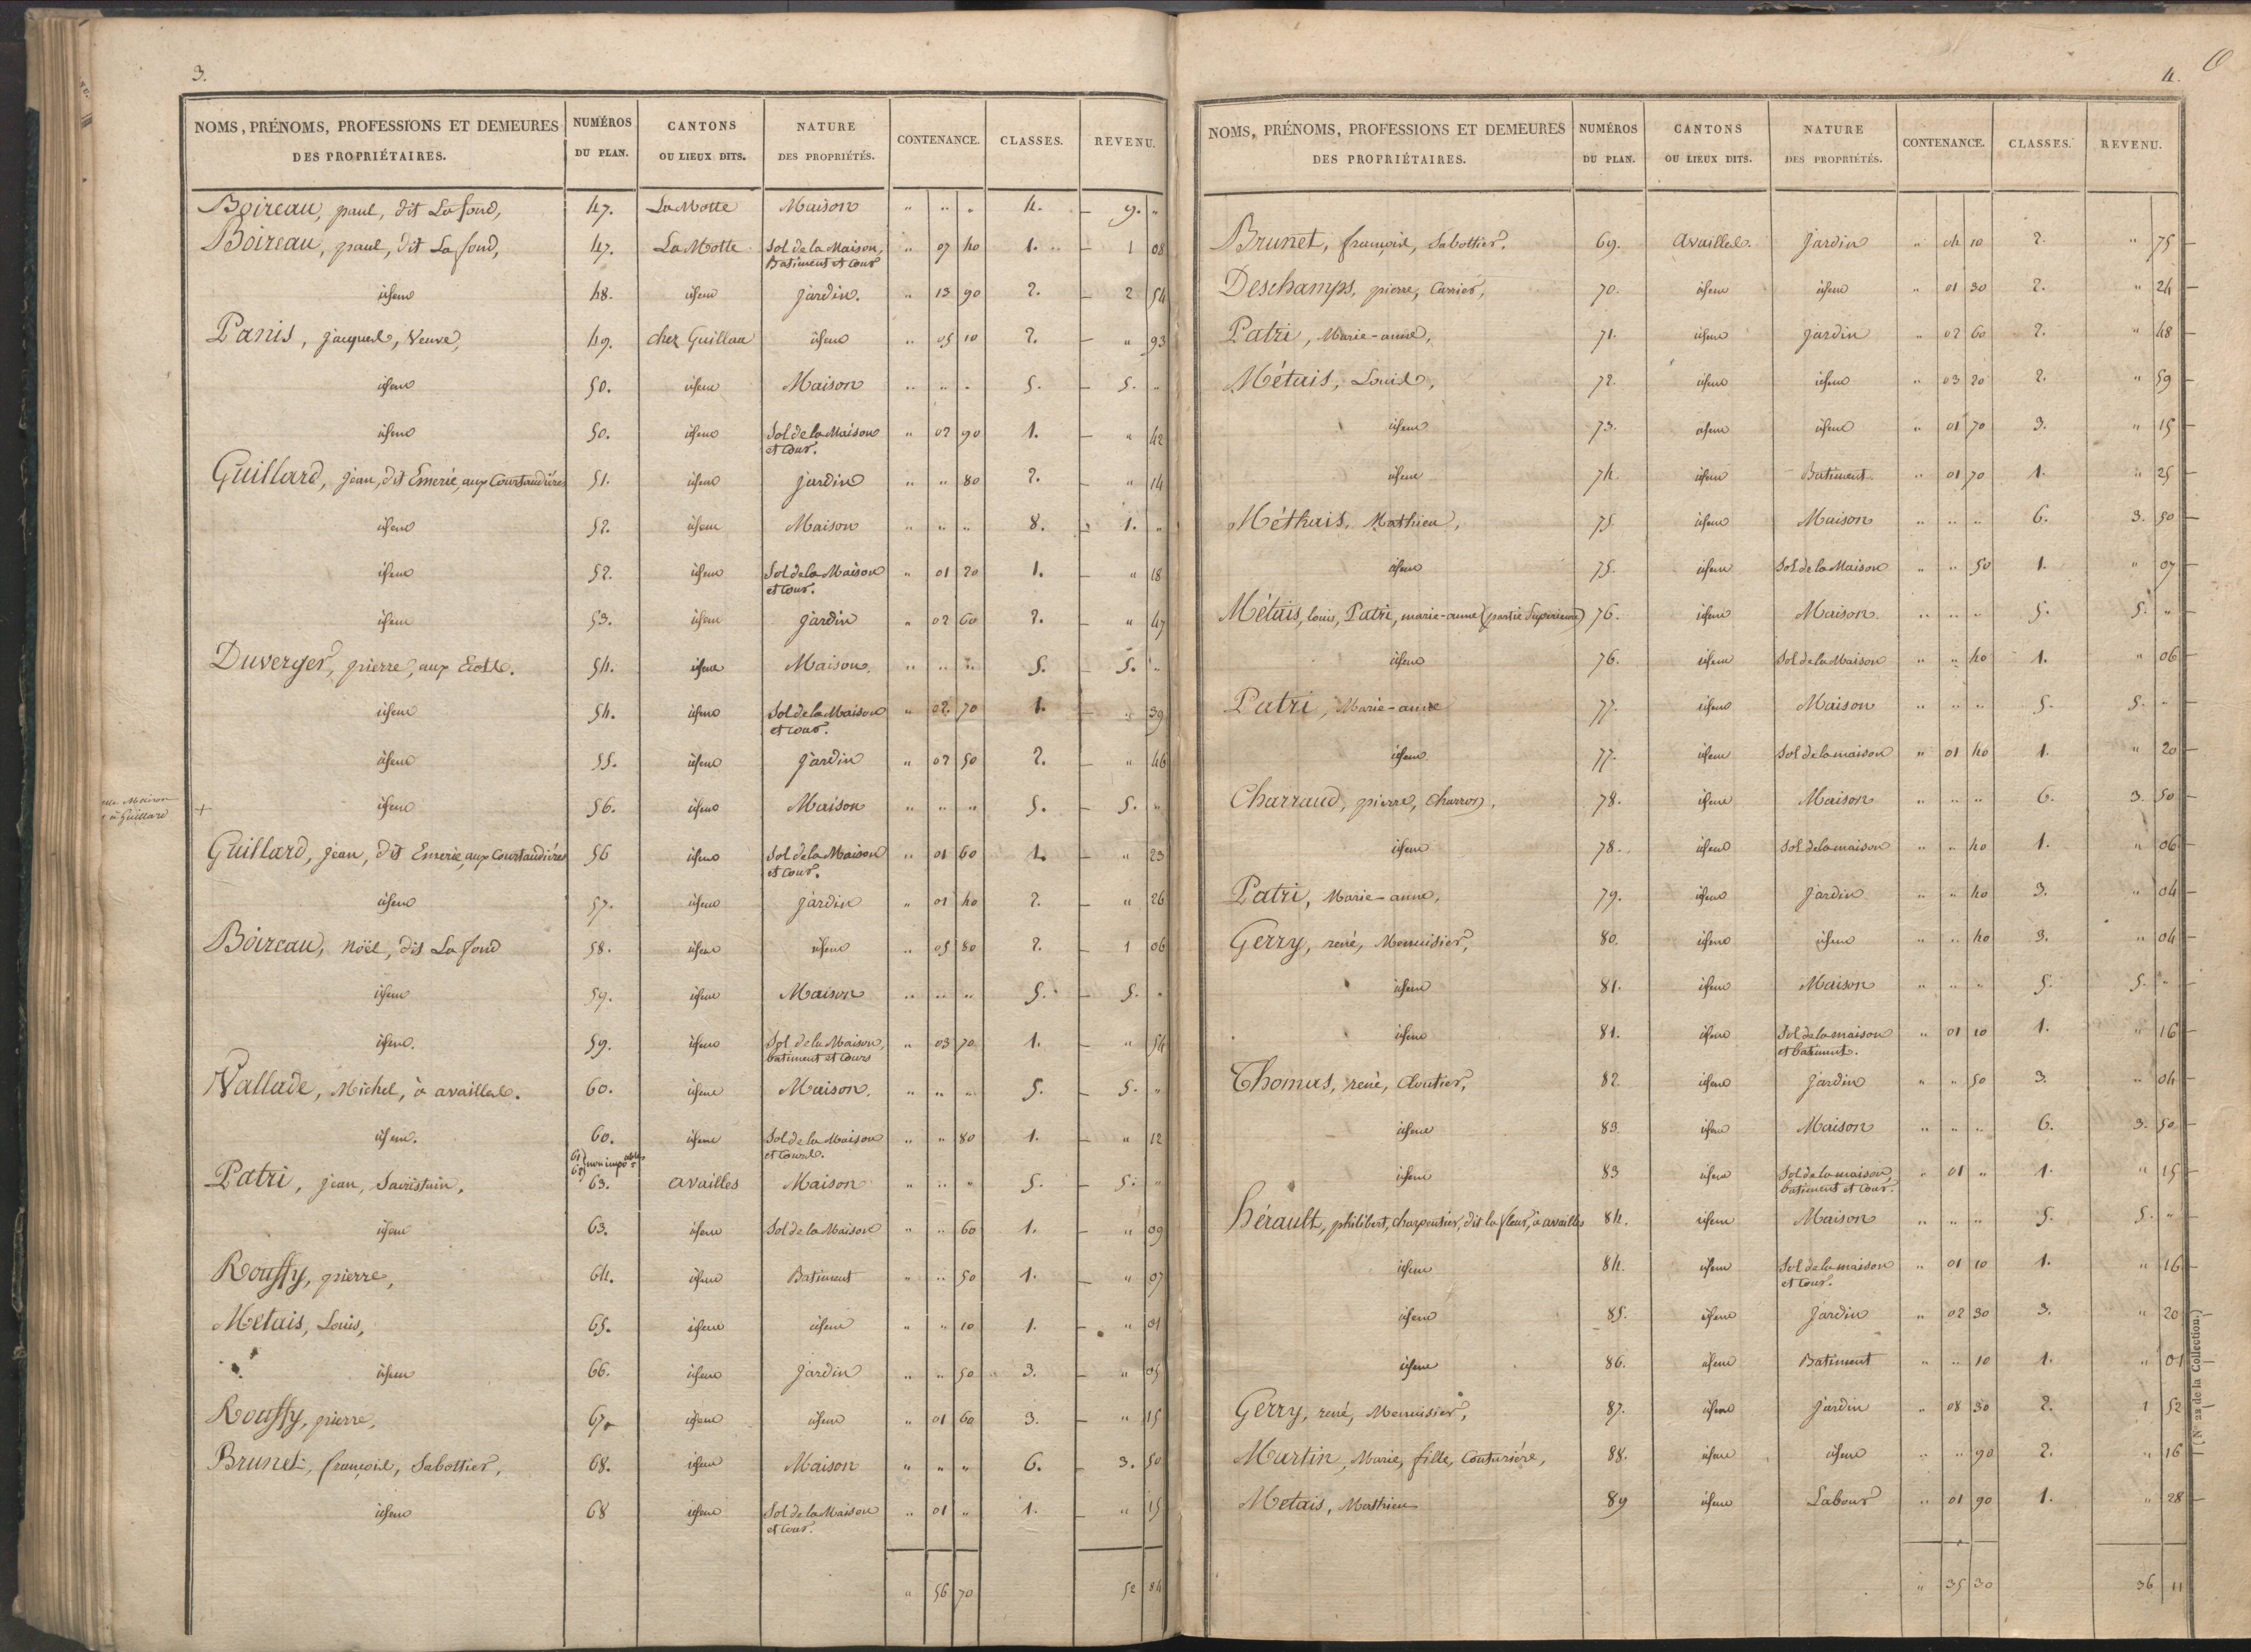 3.
NOMS, PRÉNOMS, PROFESSIONS ET DEMEURES DES PROPRIÉTAIRES. NUMÉROS DU PLAN. CANTONS OU LIEUX DITS. NATURE DES PROPRIÉTÉS. CONTENANCE. CLASSES. REVENU.
Boireau, paul, dit La fond, 47. La Motte Maison " " " 4. 9. "
Boireau, paul, dit La fond, 47. La Motte Sol de la Maison, Batiment et Cour " 07 40 1. 1 08
idem 48. idem Jardin. " 13 90 2. 2 54
Panis, Jacques, Veuve, 49. chez Guillau idem " 05 10 2. " 93
idem 50. idem Maison " " " 5. 5. "
idem 50. idem Sol de la Maison et Cour. " 02 90 1. " 42
Guillard, Jean, dit Emerie, aux Courtaudières 51. idem Jardin " " 80 2. " 14
idem 52. idem Maison " " " 8. 1. "
idem 52. idem Sol de la Maison et Cour. " 01 20 1. " 18
idem 53. idem Jardin " 02 60 2. " 47
Duverger, pierre, aux 54. idem Maison. " " " 5. 5. "
idem 54. idem Sol de la Maison et Cour. " 02 70 1. " 39
idem 55. idem Jardin " 02 50 2. " 46
Maison
à Guillard
+ idem 56. idem Maison " " " 5. 5. "
Guillard, Jean, dit Emerie, aux Courtaudières 56 idem Sol de la Maison et Cour. " 01 60 1. " 23
idem 57. idem Jardin " 01 40 2. " 26
Boireau, Noël, dit La fond 58. idem idem " 05 80 2. 1 06
idem 59. idem Maison " " " 5. 5. "
idem. 59. idem Sol de la Maison, batiment et Cours " 03 70 1. " 54
Vallade, Michel, à availles. 60. idem Maison. " " " 5. 5. "
idem. 60. idem Sol de la Maison et Cours. " " 80 1. " 12
61 62 } non imposables
Patri, jean, Sacristain, 63. availles Maison " " " 5. 5. "
idem 63. idem Sol de la Maison " " 60 1. " 09
Rouffy, pierre, 64. idem Batiment " " 50 1. " 07
Metais, Louis, 65. idem idem " " 10 1. " 01
idem 66. idem Jardin " " 50 3. " 05
Rouffy, pierre, 67. idem idem " 01 60 3. " 15
Brunet, françois, Sabottier, 68. idem Maison " " " 6. 3. 50
idem 68 idem Sol de la Maison et Cour. " 01 " 1. " 15
" 56 70 52 84
4.
NOMS, PRÉNOMS, PROFESSIONS ET DEMEURES DES PROPRIÉTAIRES. NUMÉROS DU PLAN. CANTONS OU LIEUX DITS. NATURE DES PROPRIÉTÉS. CONTENANCE. CLASSES. REVENU.
Brunet, françois, Sabottier. 69. Availles. Jardin " 04 10 2. " 75
Deschamps, pierre, Carrier, 70. idem idem " 01 30 2. " 24
Patri, Marie-anne, 71. idem Jardin " 02 60 2. " 48
Métais, Louis, 72. idem idem " 03 20 2. " 59
idem 73. idem idem " 01 70 3. " 15
idem 74. idem Batiment " 01 70 1. " 25
Méthais, Mathieu, 75. idem Maison " " " 6. 3. 50
idem 75. idem Sol de la Maison " " 50 1. " 07
Métais, louis, Patri, marie-anne (partie Superieure) 76. idem Maison. " " " 5. 5. "
idem 76. idem Sol de la Maison " " 40 1. " 06
Patri, Marie-anne 77. idem Maison " " " 5. 5. "
idem 77. idem Sol de la maison " 01 40 1. " 20
Charraud, pierre, Charron, 78. idem Maison " " " 6. 3. 50
idem 78. idem Sol de la maison " " 40 1. " 06
Patri, Marie-anne, 79. idem Jardin " " 40 3. " 04
Gerry, rené, Menuisier, 80. idem idem " " 40 3. " 04
idem 81. idem Maison " " " 5. 5. "
idem 81. idem Sol de la maison et batiment. " 01 10 1. " 16
Thomas, rené, Cloutier, 82. idem Jardin " " 50 3. " 04
idem 83. idem Maison " " " 6. 3. 50
idem 83 idem Sol de la maison, batiment et Cour. " 01 " 1. " 15
hérault, philibert, charpentier, dit la fleur, à availles 84. idem Maison " " " 5. 5. "
idem 84. idem Sol de la maison et Cour. " 01 10 1. " 16
idem 85. idem Jardin " 02 30 3. " 20
idem 86. idem Batiment " " 10 1. " 01
Gerry, rené, Menuisier, 87. idem Jardin " 08 30 2. 1 52
Martin, Marie, fille, Couturière, 88. idem idem " " 90 2. " 16
Metais, Mathieu 89 idem Labour " 01 90 1. " 28
" 35 30 36 11
(N° 28 de la Collection.)